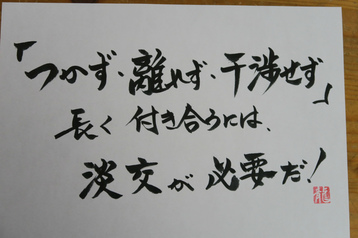 「つかず、離れず、干渉せず」
長く付き合うには、
淡交が必要だ!